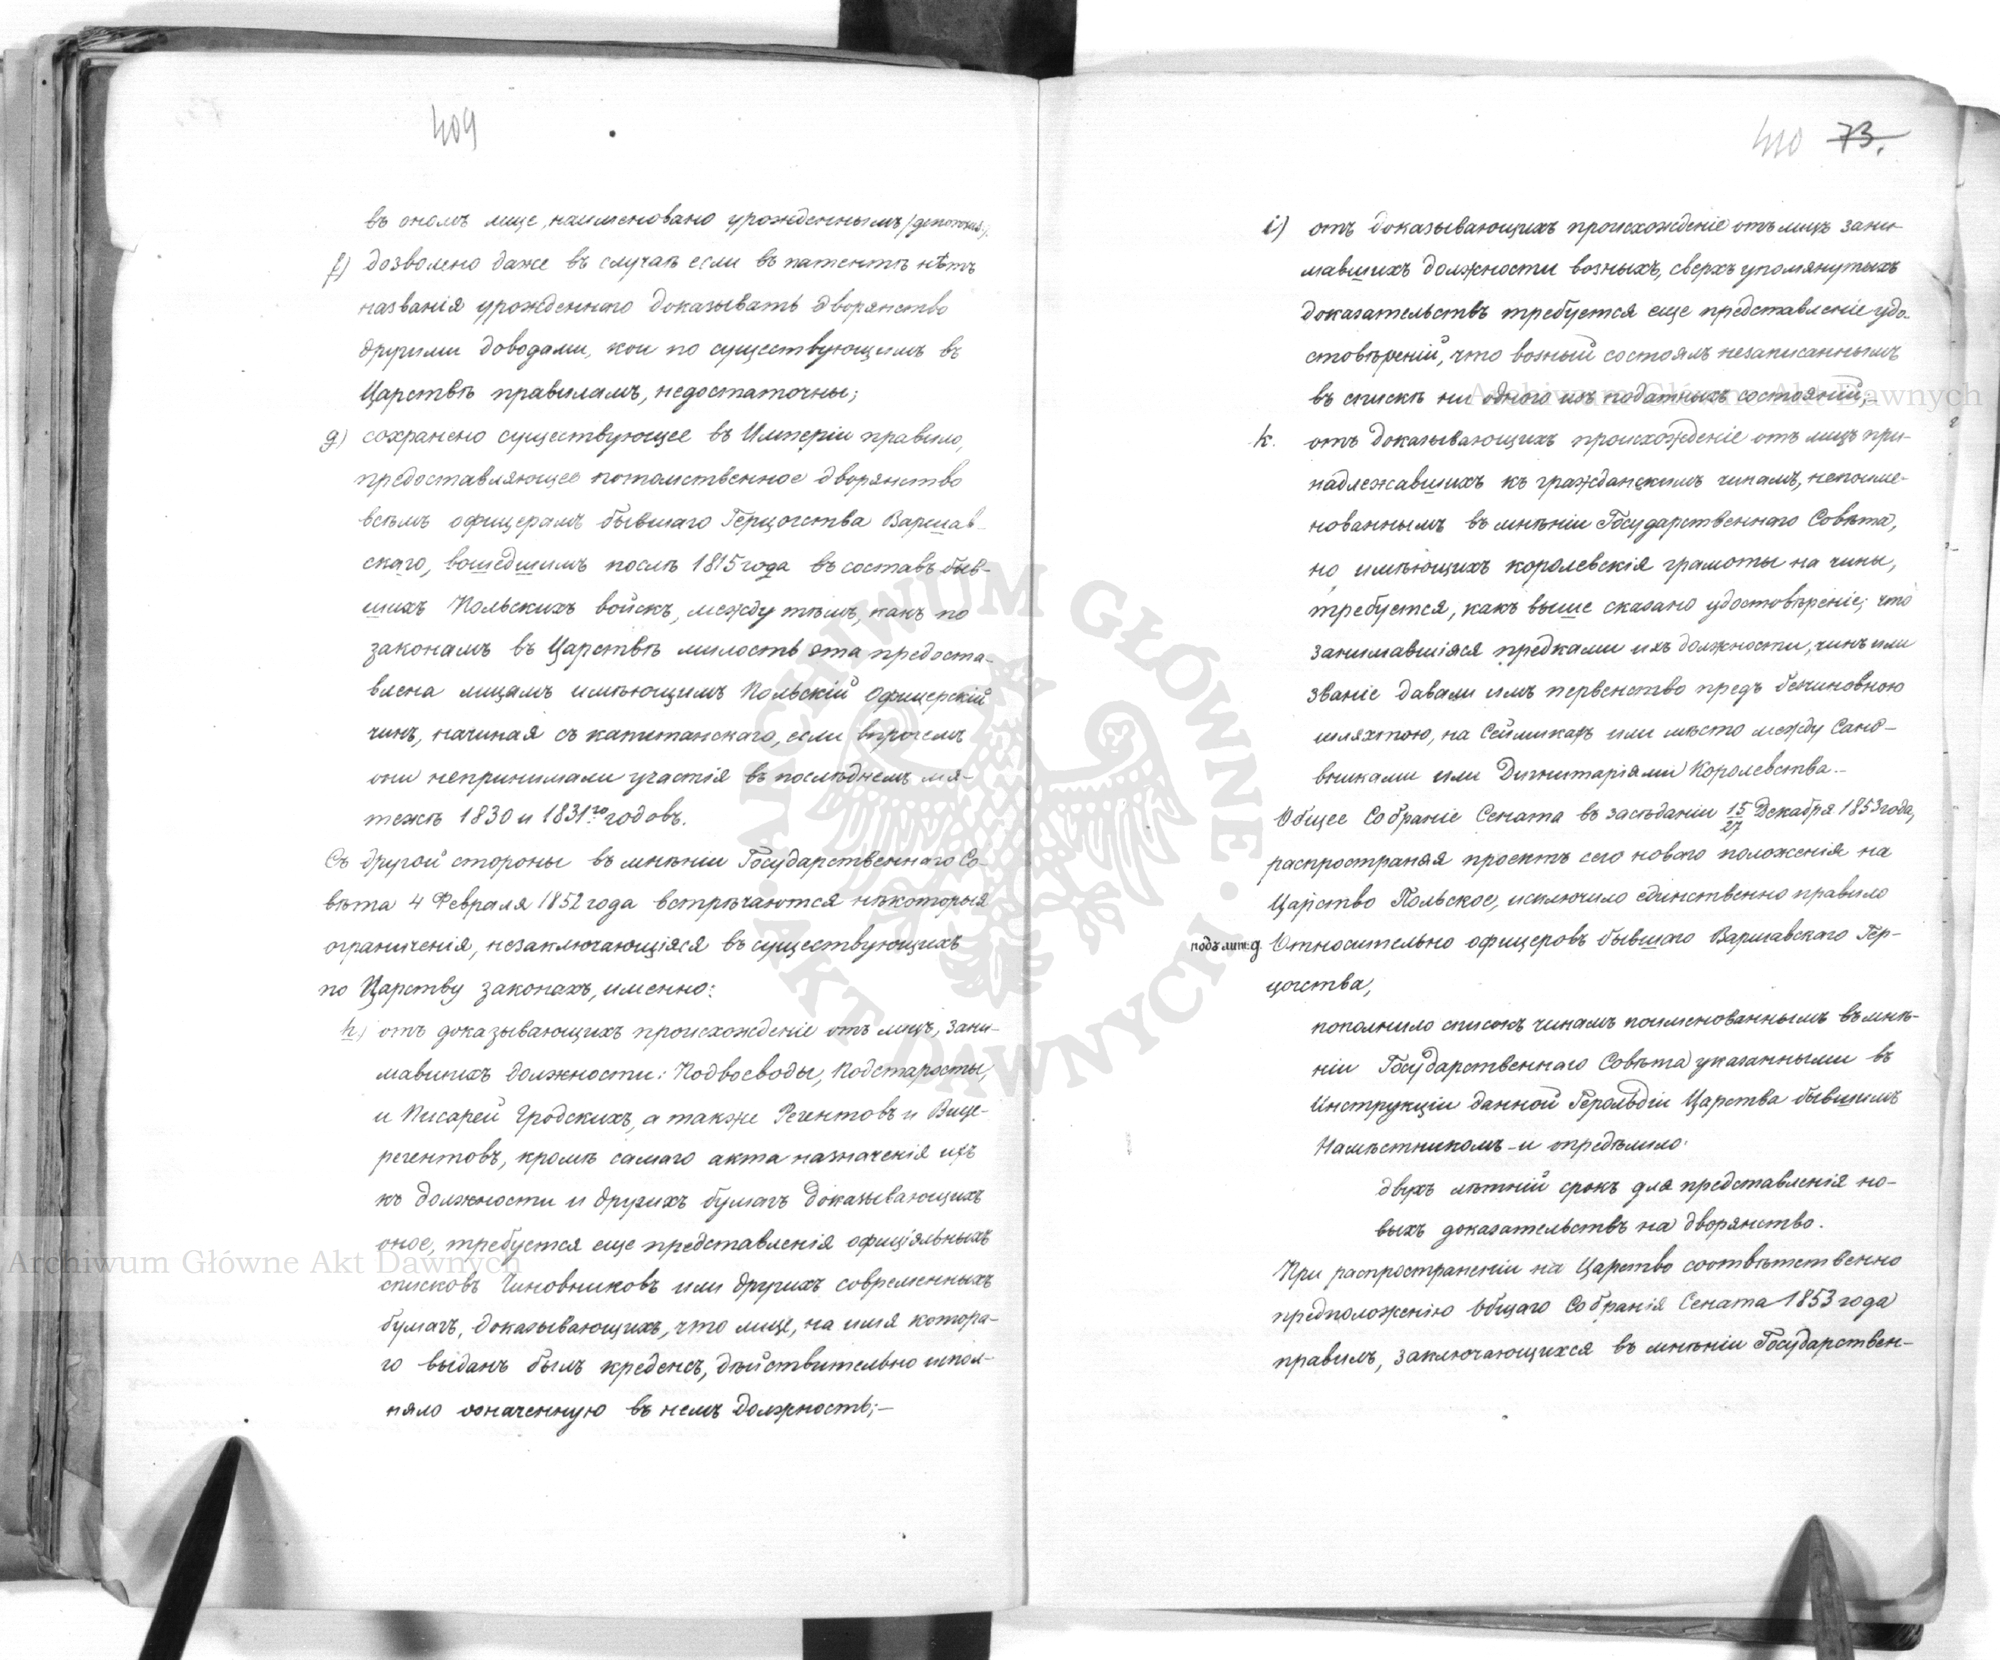 409
въ ономъ лице, наименовано урожденнымъ
f) дозволено даже въ случаѣ если въ патентѣ нѣтъ
названія урожденнаго доказывать дворянство
другими доводами, кои по существующимъ въ
Царствѣ правиламъ, недостаточны;
g) сохранено существующее въ Имперіи правило,
предоставляющее потомственное дворянство
всѣмъ офицерамъ бывшаго Герцогства Варшав-
скаго, вошедшимъ послѣ 1815 года въ составъ быв-
шихъ Польскихъ войскъ, между тѣмъ, какъ по
законамъ въ Царствѣ милость эта предоста-
влена лицамъ имѣющимъ Польскій Офицерскій
чинъ, начиная съ капитанскаго, если впрочемъ
они непринимали участія въ послѣднемъ мя-
тежѣ 1830 и 1831го годовъ.
Съ другой стороны въ мнѣніи Государственнаго Со-
вѣта 4 Февраля 1852 года встрѣчаются нѣкоторыя
ограниченія, незаключающіяся въ существующихъ
по Царству законахъ, именно:
h) отъ доказывающихъ происхожденіе отъ лицъ, зани-
мавшихъ должности: Подвоеводы, Подстаросты,
и Писарей Гродскихъ, а также Регентовъ и Вице-
регентовъ, кромѣ самаго акта назначенія ихъ
къ должности и другихъ бумагъ доказывающихъ
оное, требуется еще представленія офиціяльныхъ
списковъ Чиновниковъ или другихъ современныхъ
бумагъ, доказывающихъ, что лице, на имя котора-
го выданъ былъ креденсъ, дѣйствительно испол-
няло означенную въ немъ должность;—
410 73.
i) отъ доказывающихъ происхожденіе отъ лицъ зани-
мавшихъ должности возныхъ, сверхъ упомянутыхъ
доказательствъ требуется еще представленіе удо-
стовѣреній, что возный состоялъ незаписаннымъ
въ списки ни одного изъ податныхъ состояній;—
k. отъ доказывающихъ происхожденіе отъ лицъ при-
надлежавшихъ къ гражданскимъ чинамъ, непоиме-
нованнымъ въ мнѣніи Государственнаго Совѣта,
но имѣющихъ королевскія грамоты на чины,
требуется, какъ выше сказано удостовѣреніе; что
занимавшіяся предками ихъ должности, чинъ или
званіе давали имъ первенство предъ безчиновною
шляхтою, на Сеймикахъ или мѣсто между Сано-
вниками или Дигнитаріями Королевства.—
Общее Собраніе Сената въ засѣданіи 15/27 Декабря 1853 года,
распространяя проектъ сего новаго положенія на
Царство Польское, исключило единственно правило
подъ лит: g. Относительно офицеровъ бывшаго Варшавскаго Гер-
цогства,
пополнило списокъ чинамъ поименованнымъ въ мнѣ-
ніи Государственнаго Совѣта указанными въ
Инструкціи данной Герольдіи Царства бывшимъ
Намѣстникомъ — и опредѣлило:
двухъ лѣтній срокъ для представленія но-
выхъ доказательствъ на дворянство.
При распространеніи на Царство соотвѣтственно
предположенію Общаго Собранія Сената 1853 года
правилъ, заключающихся въ мнѣніи Государствен-
Archiwum Główne Akt Dawnych
Archiwum Główne Akt Dawnych
ARCHIWUM GŁÓWNE AKT DAWNYCH